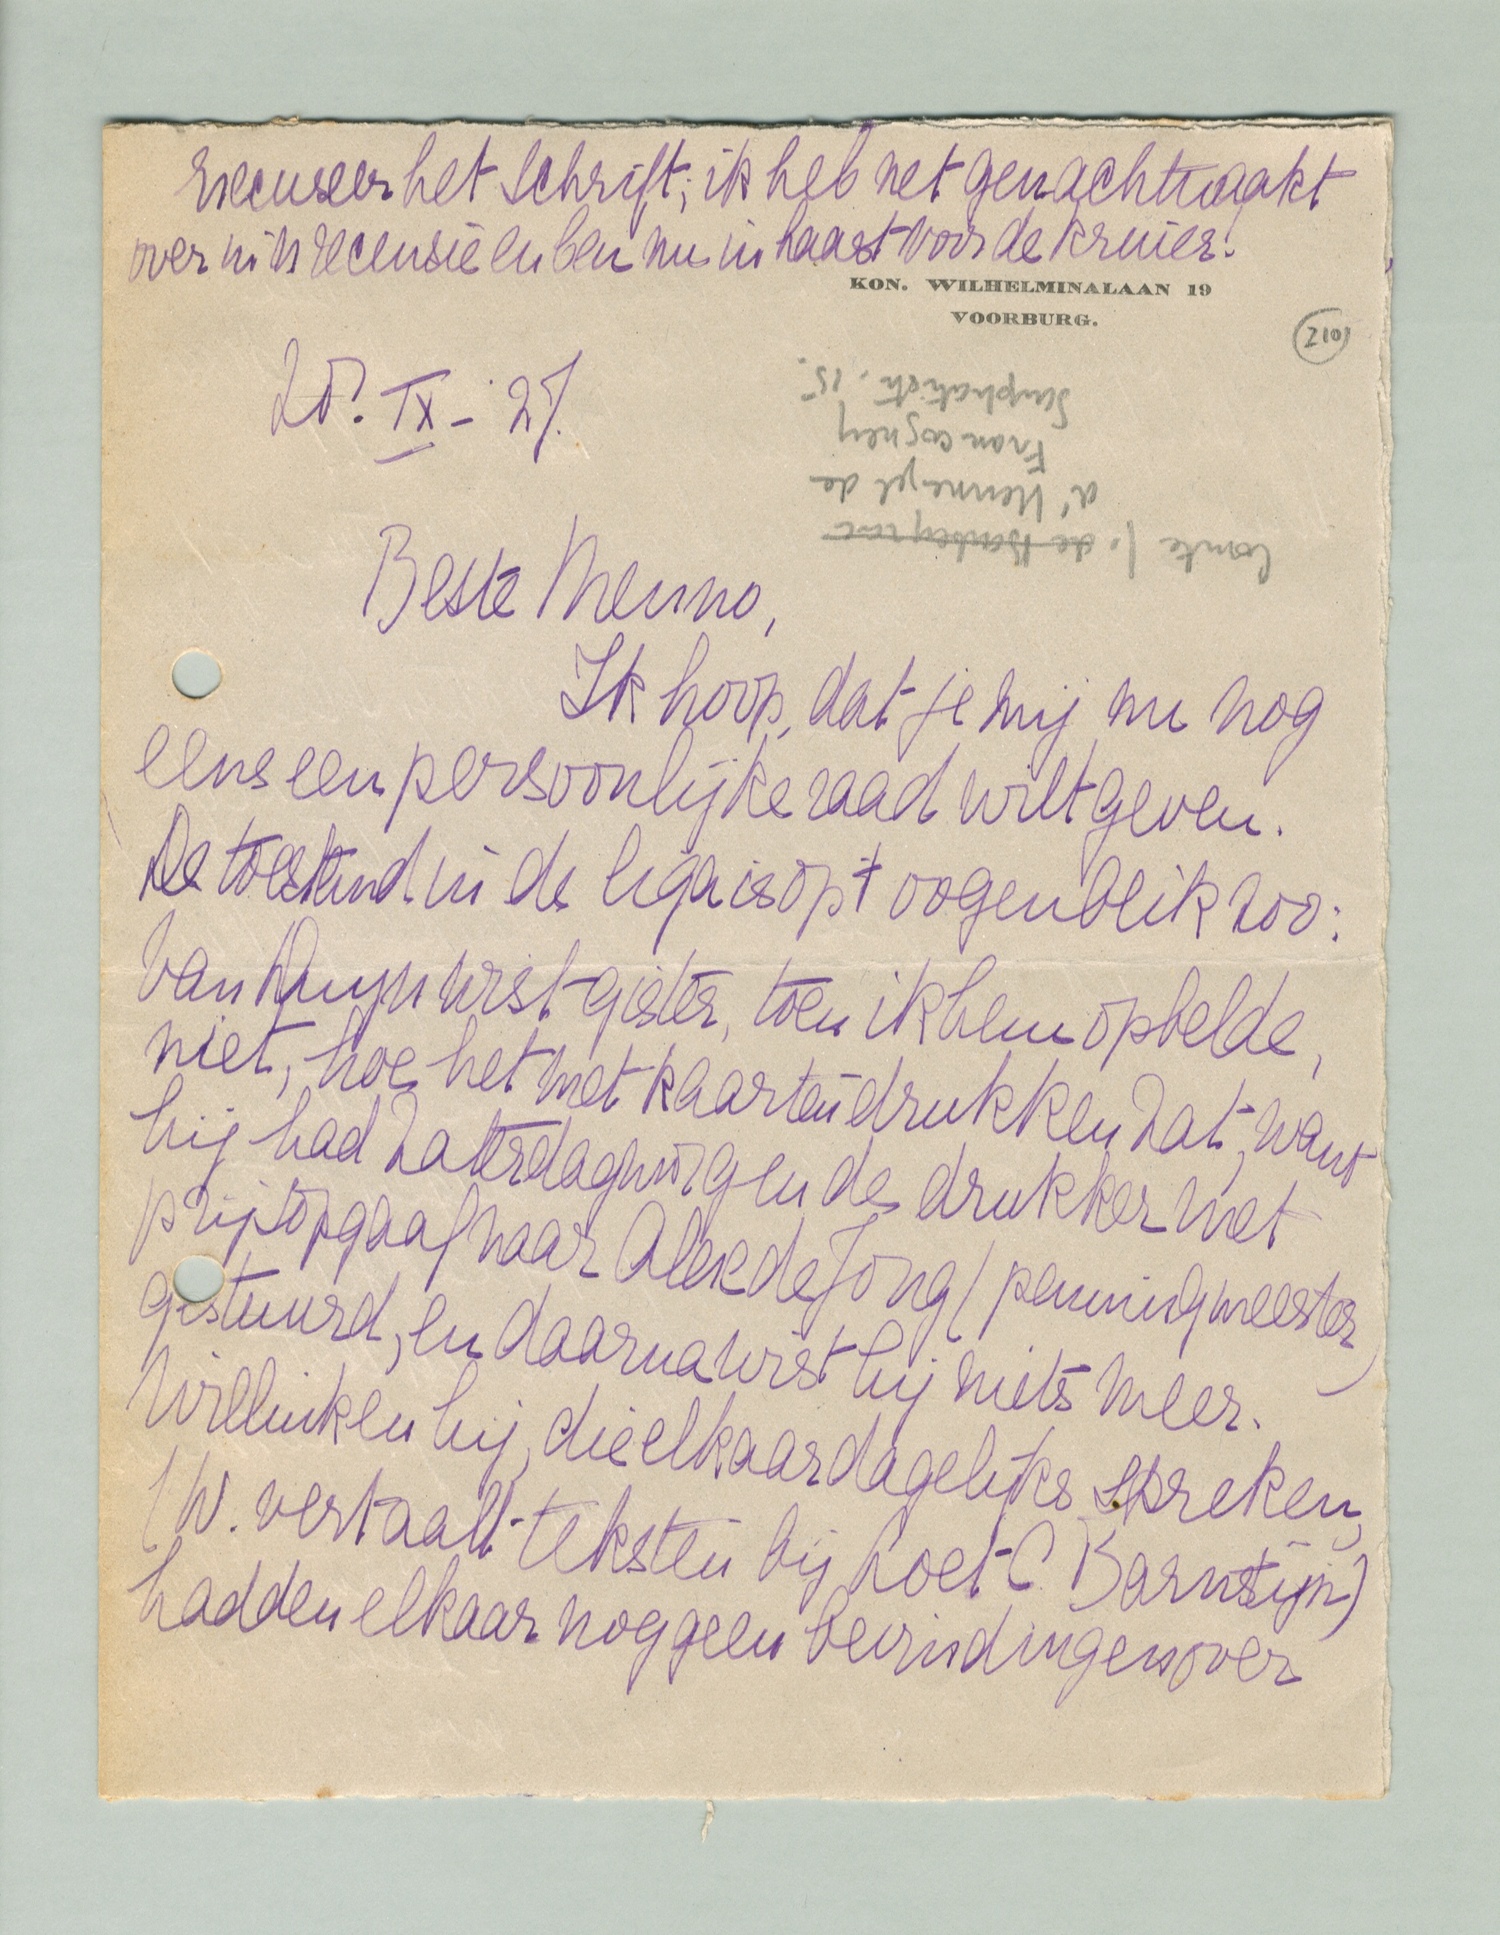 Excuseer het schrift; ik heb net genachtwaakt
over m'n recensie en ben nu in haast voor de kruier.
KON. WILHELMINALAAN 19
VOORBURG.
210
20. IX - '27.
Comte J. de
d'Hennezel de
Francogney
Sarphatistr. 15.
Beste Menno,
Ik hoop, dat je mij nu nog
eens een persoonlijke raad wilt geven.
De toestand in de liga is op 't oogenblik zoo:
Van Duyn wist gister, toen ik hem opbelde,
niet, hoe het met kaartendrukken zat, want
hij had Zaterdagmorgen de drukker met
prijsopgaaf naar Alex de Jong (penningmeester)
gestuurd, en daarna wist hij niets meer.
Willink en hij, die elkaar dagelijks spreken,
(W. vertaalt teksten bij Loet C. Barnstijn)
hadden elkaar nog geen bevindingen over